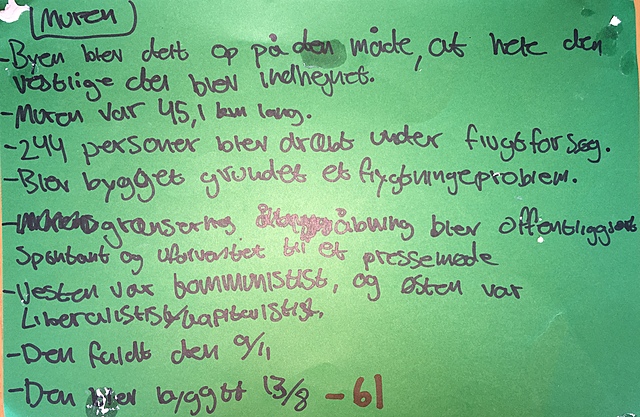 Muren
-Byen blev delt op på den måde, at hele den
vestlige del blev indhegnet.
-Muren var 45,1 km lang.
-244 personer blev dræbt under flugtforsøg.
-Blev bygget grundet et flygtningeproblem.
-grænsering åbning blev offentliggjort
spontant og uforventet til et pressemøde
-Vesten var kommunistist, og østen var
Liberalistisk/kapitalistist.
-Den faldt den 9/11
-Den blev bygget 13/8 -61